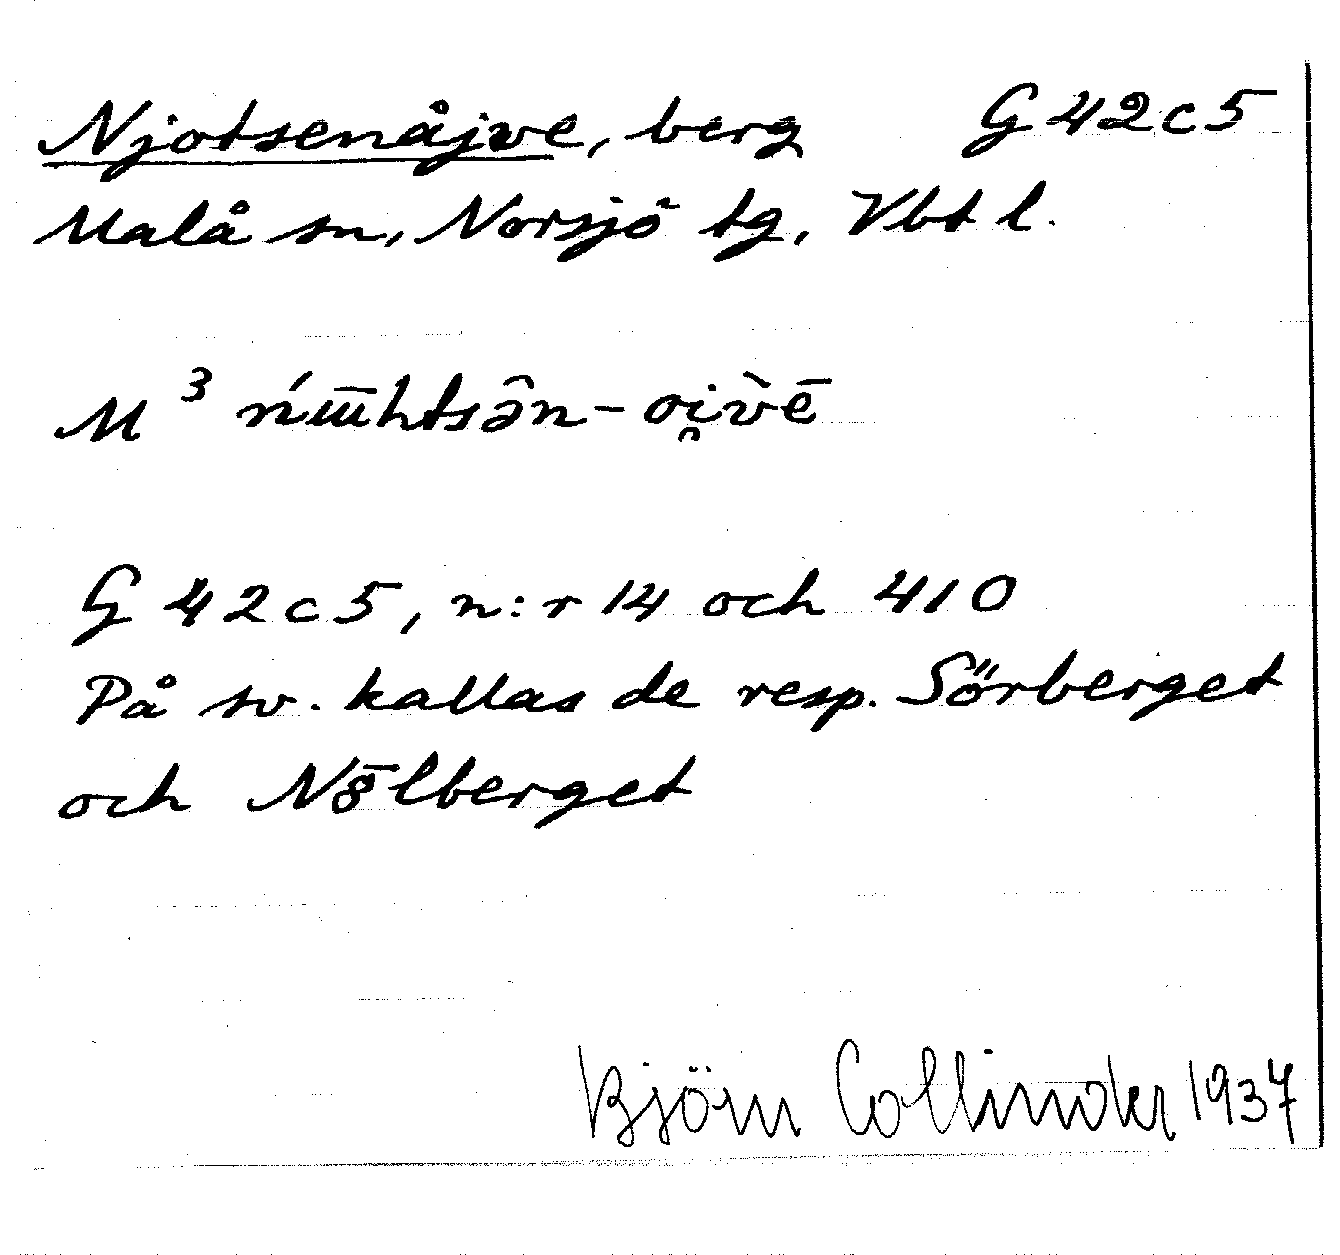 Njotsenåjve, berg G 42 c 5
Malå sn, Norsjö tg, Vbt l.
M ³ ńɯ̄htsə̑n-oi̯v̀ē
G 42 c 5, n:r 14 och 410
På sv. kallas de resp. Sörberget
och N8̄lberget
Björn Collinder 1937